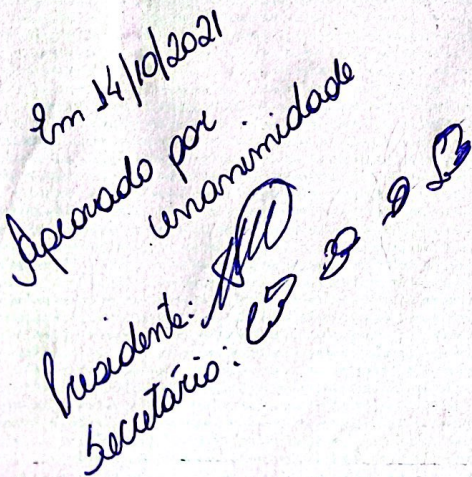 Em 14/10/2021
Aprovado por
unanimidade
Presidente:
Secretário: